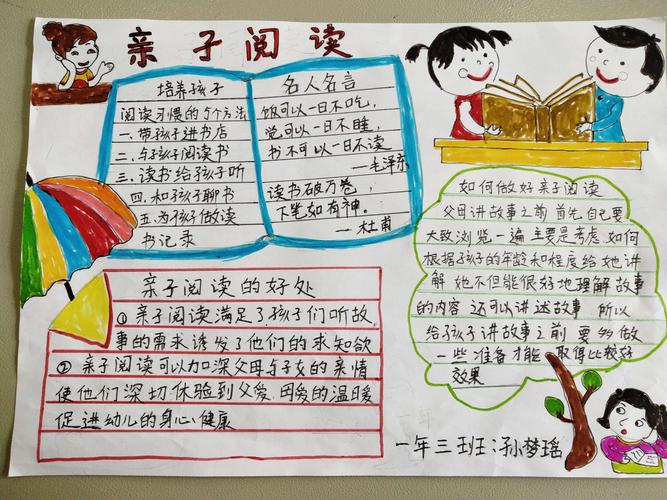 亲子阅读
培养孩子
阅读习惯的5个方法
一.带孩子进书店
二.与孩子阅读书
三.读书给孩子听
四.和孩子聊书
五.为孩子做读
书记录
名人名言
饭可以一日不吃,
觉可以一日不睡,
书不可以一日不读
—毛泽东
读书破万卷,
下笔如有神。
—杜甫
如何做好亲子阅读
父母讲故事之前 首先自己要
大致浏览一遍 主要是考虑 如何
根据孩子的年龄和程度给她讲
解 她不但能很好地理解故事
的内容 还可以讲述故事 所以
给孩子讲故事之前 要多做
一些准备才能 取得比较好
效果
亲子阅读的好处
①亲子阅读满足了孩子们听故
事的需求诱发了他们的求知欲
②亲子阅读可以加深父母与子女的亲情
使他们深切体验到父爱.母爱的温暖
促进幼儿的身心健康
一年三班:孙梦瑶